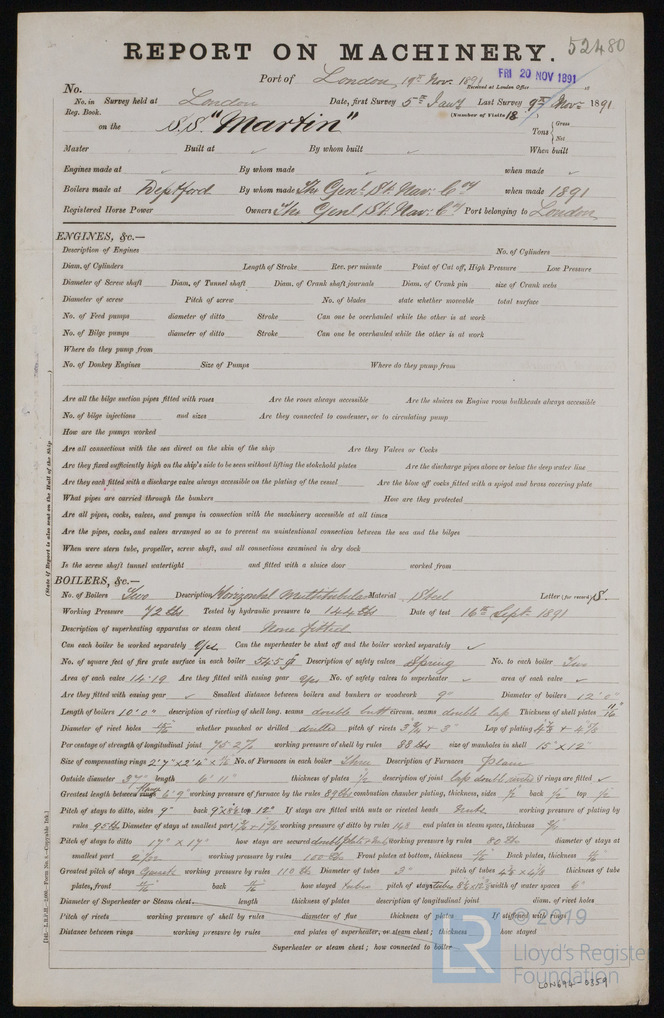 52480
REPORT ON MACHINERY.
Port of London, 19th Nov. 1891 Received at London Office FRI 20 NOV 1891
No.
No. in Survey held at London Date, first Survey 5th Jany Last Survey 9th Nov: 1891
Reg. Book. (Number of Visits 18)
on the S.S. "Martin" Tons Gross Net
Master Built at By whom built When built
Engines made at By whom made when made
Boilers made at Deptford By whom made The Genl. St. Nav: Coy when made 1891
Registered Horse Power Owners The Genl St. Nav: Coy Port belonging to London
ENGINES, &c.—
Description of Engines No. of Cylinders
Diam. of Cylinders Length of Stroke Rev. per minute Point of Cut off, High Pressure Low Pressure
Diameter of Screw shaft Diam. of Tunnel shaft Diam. of Crank shaft journals Diam. of Crank pin size of Crank webs
Diameter of screw Pitch of screw No. of blades state whether moveable total surface
No. of Feed pumps diameter of ditto Stroke Can one be overhauled while the other is at work
No. of Bilge pumps diameter of ditto Stroke Can one be overhauled while the other is at work
Where do they pump from
No. of Donkey Engines Size of Pumps Where do they pump from
Are all the bilge suction pipes fitted with roses Are the roses always accessible Are the sluices on Engine room bulkheads always accessible
No. of bilge injections and sizes Are they connected to condenser, or to circulating pump
How are the pumps worked
Are all connections with the sea direct on the skin of the ship Are they Valves or Cocks
Are they fixed sufficiently high on the ship's side to be seen without lifting the stokehold plates Are the discharge pipes above or below the deep water line
Are they each fitted with a discharge valve always accessible on the plating of the vessel Are the blow off cocks fitted with a spigot and brass covering plate
What pipes are carried through the bunkers How are they protected
Are all pipes, cocks, valves, and pumps in connection with the machinery accessible at all times
Are the pipes, cocks, and valves arranged so as to prevent an unintentional connection between the sea and the bilges
When were stern tube, propeller, screw shaft, and all connections examined in dry dock
Is the screw shaft tunnel watertight and fitted with a sluice door worked from
BOILERS, &c.—
No. of Boilers Two Description Horizontal Multitubular Material Steel Letter (for record) S.
Working Pressure 72 lbs Tested by hydraulic pressure to 144 lbs Date of test 16th Sept. 1891
Description of superheating apparatus or steam chest None fitted
Can each boiler be worked separately Yes Can the superheater be shut off and the boiler worked separately
No. of square feet of fire grate surface in each boiler 54.5 Description of safety valves Spring No. to each boiler Two
Area of each valve 14.19 Are they fitted with easing gear Yes No. of safety valves to superheater area of each valve
Are they fitted with easing gear Smallest distance between boilers and bunkers or woodwork 9" Diameter of boilers 12' 0"
Length of boilers 10' 0" description of riveting of shell long. seams double butt circum. seams double lap Thickness of shell plates 11/16"
Diameter of rivet holes whether punched or drilled drilled pitch of rivets Lap of plating
Per centage of strength of longitudinal joint 75.2% working pressure of shell by rules 88 lbs size of manholes in shell 15" x 12"
Size of compensating rings No. of Furnaces in each boiler Three Description of Furnaces Plain
Outside diameter 37" length 6' 11" thickness of plates 1/2 description of joint lap double riveted if rings are fitted
Greatest length between rings 6' 9" working pressure of furnace by the rules 89 lbs combustion chamber plating, thickness, sides back top
Pitch of stays to ditto, sides 9" back top 12" If stays are fitted with nuts or riveted heads nuts working pressure of plating by
rules 95 lbs Diameter of stays at smallest part working pressure of ditto by rules end plates in steam space, thickness
Pitch of stays to ditto 17" x 17" how stays are secured working pressure by rules 80 lbs diameter of stays at
smallest part working pressure by rules 100 lbs Front plates at bottom, thickness Back plates, thickness
Greatest pitch of stays working pressure by rules 110 lbs Diameter of tubes 3" pitch of tubes thickness of tube
plates, front back how stayed tubes pitch of stays width of water spaces 6"
Diameter of Superheater or Steam chest length thickness of plates description of longitudinal joint diam. of rivet holes
Pitch of rivets working pressure of shell by rules diameter of flue thickness of plates If stiffened with rings
Distance between rings working pressure by rules end plates of superheater, or steam chest; thickness how stayed
Superheater or steam chest; how connected to boiler
© 2019
LR
Lloyd's Register
Foundation
LON694-0359